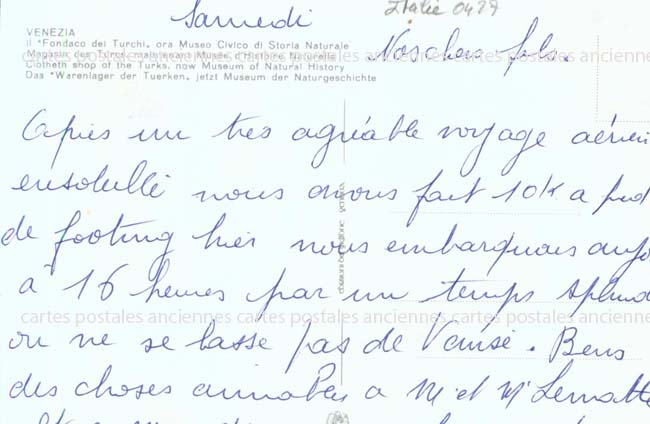 Samedi
Italie 0427
VENEZIA
Il "Fondaco dei Turchi, ora Museo Civico di Storia Naturale
Magasin des Turcs, maintenant Musée d'Histoire Naturelle
Clotheth shop of the Turks, now Museum of Natural History
Das "Warenlager der Tuerken, jetzt Museum der Naturgeschichte
cartes postales anciennes cartes postales anciennes
Nos chers
Après un très agréable voyage aérien
ensoleillé nous avons fait 10K a pied
de footing hier nous embarquons
à 16 heures par un temps
cartes postales anciennes cartes postales anciennes
on ne se lasse pas de Venise. Bens
des choses aimables a M et Me